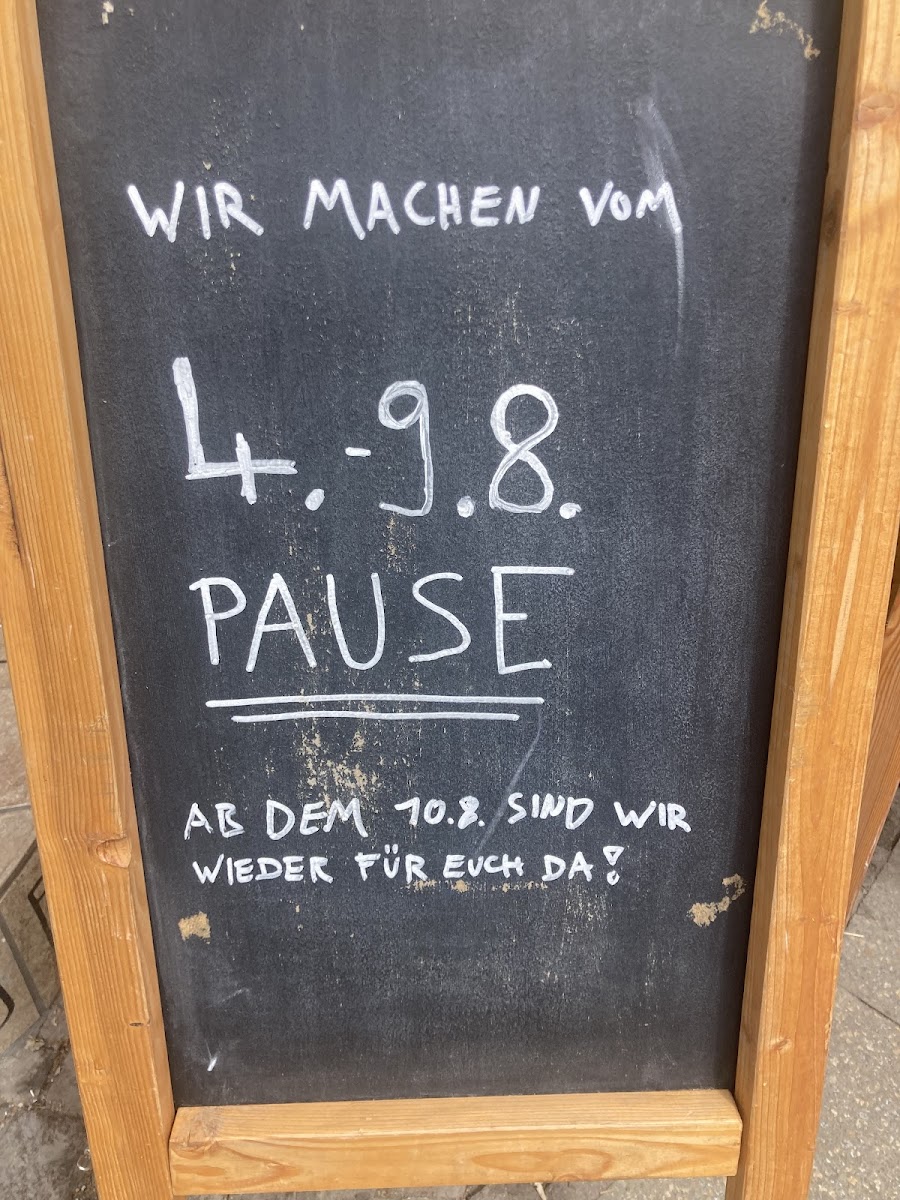 WIR MACHEN VOM
4.-9.8.
PAUSE
AB DEM 10.8. SIND WIR
WIEDER FÜR EUCH DA!